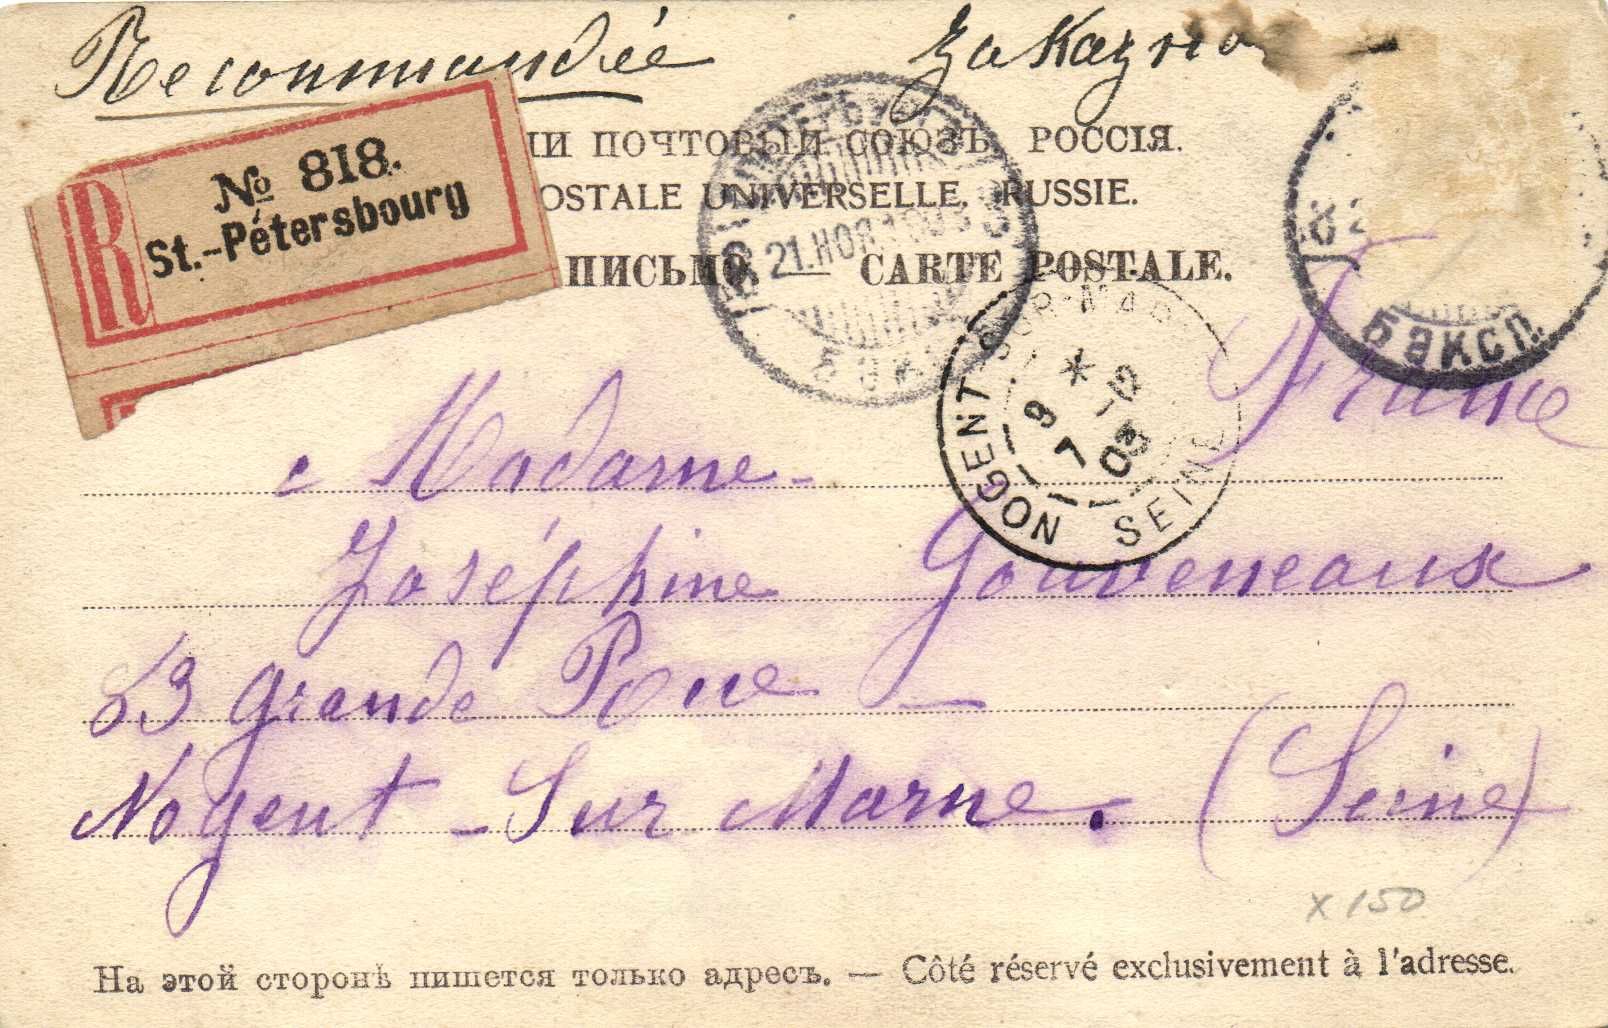 Recommandée Заказно
№ 818.
St.-Pétersbourg
R
ПОЧТОВЫЙ СОЮЗЪ. РОССІЯ.
OSTALE UNIVERSELLE. RUSSIE.
ПИСЬМО. — CARTE POSTALE.
21.НОЯ.1903
5 экс
NOGENT SUR MAR
SEINE
* 9-12
7
03
8 эксп.
France
Madame
Joséphine Gouveneaux
53 Grande Rue
Nogent-Sur Marne. (Seine)
x 150
На этой сторонѣ пишется только адресъ. — Côté réservé exclusivement à l'adresse.